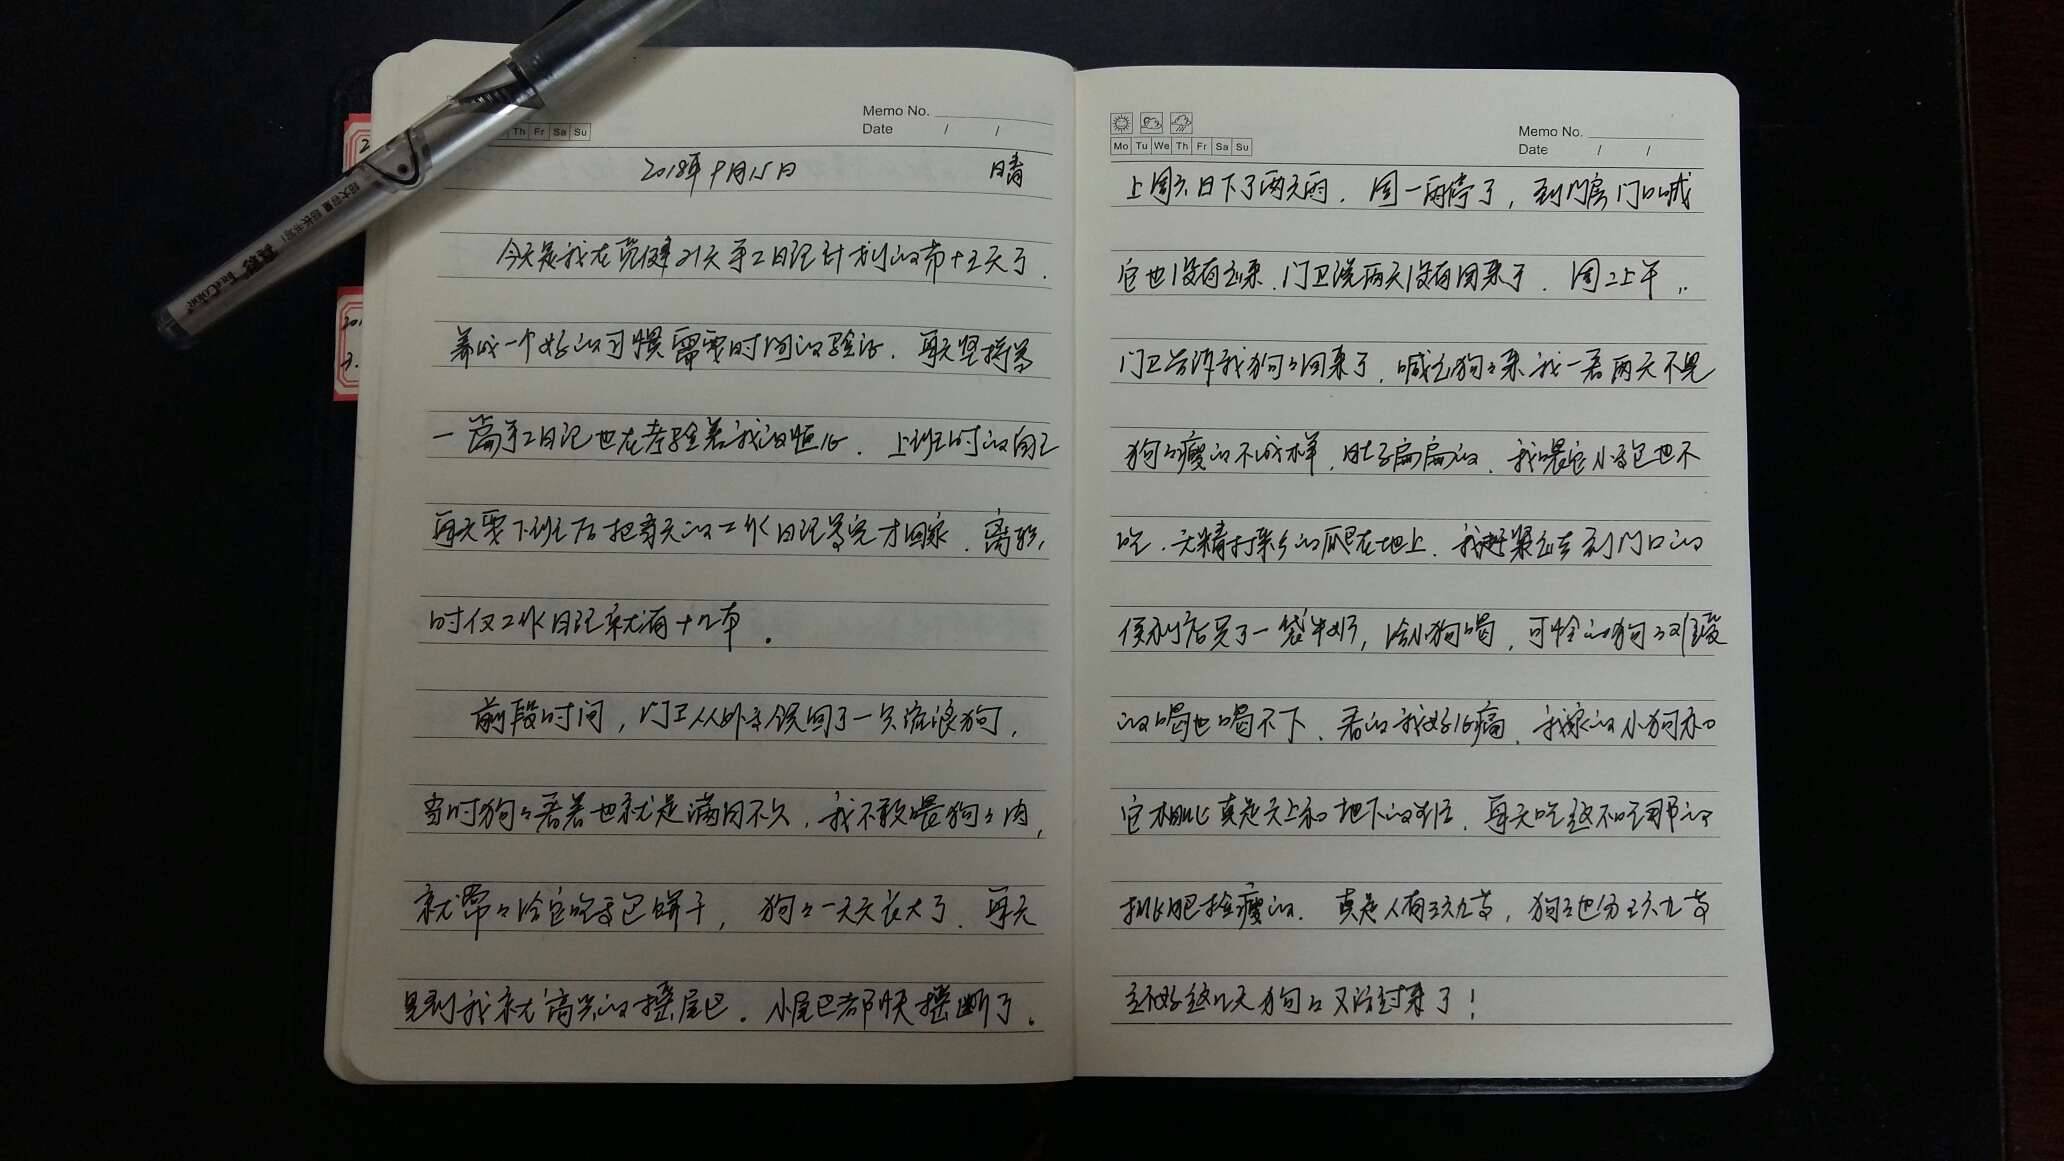 Th Fr Sa Su
Memo No.
Date / /
2018年9月15日 晴
今天是我在莞健21天手工日记计划的第十五天了.
养成一个好的习惯需要时间的验证.每天坚持写
一篇手工日记也在考验着我的恒心.上班时的自己
每天要下班后把当天的工作日记写完才回家.离职
时仅工作日记就有十几本.
前段时间,门卫从外来领回了一只流浪狗,
当时狗々看着也就是满月不久,我不敢喂狗々肉,
就常々给它吃面包饼干,狗々一天天长大了.每天
见到我就高兴的摇尾巴.小尾巴都快摇断了.
Mo Tu We Th Fr Sa Su
Memo No.
Date / /
上周六日下了两天雨.周一雨停了,到门房门口喊
它也没有出来.门卫说两天没有回来了.周二上午..
门卫告诉我狗々回来了.喊出狗々来我一看两天不见
狗々瘦的不成样,肚子扁扁的.我喂它小面包也不
吃.无精打采々的爬在地上.我赶紧出去到门口的
便利店买了一袋牛奶,给小狗喝,可怜的狗々难受
的喝也喝不下.看的我好心痛.我家的小狗和
它相比真是天上和地下的对待.每天吃这不吃那的
挑肥捡瘦的.真是人有三六九等,狗々也分三六九等
还好这几天狗々又活过来了!